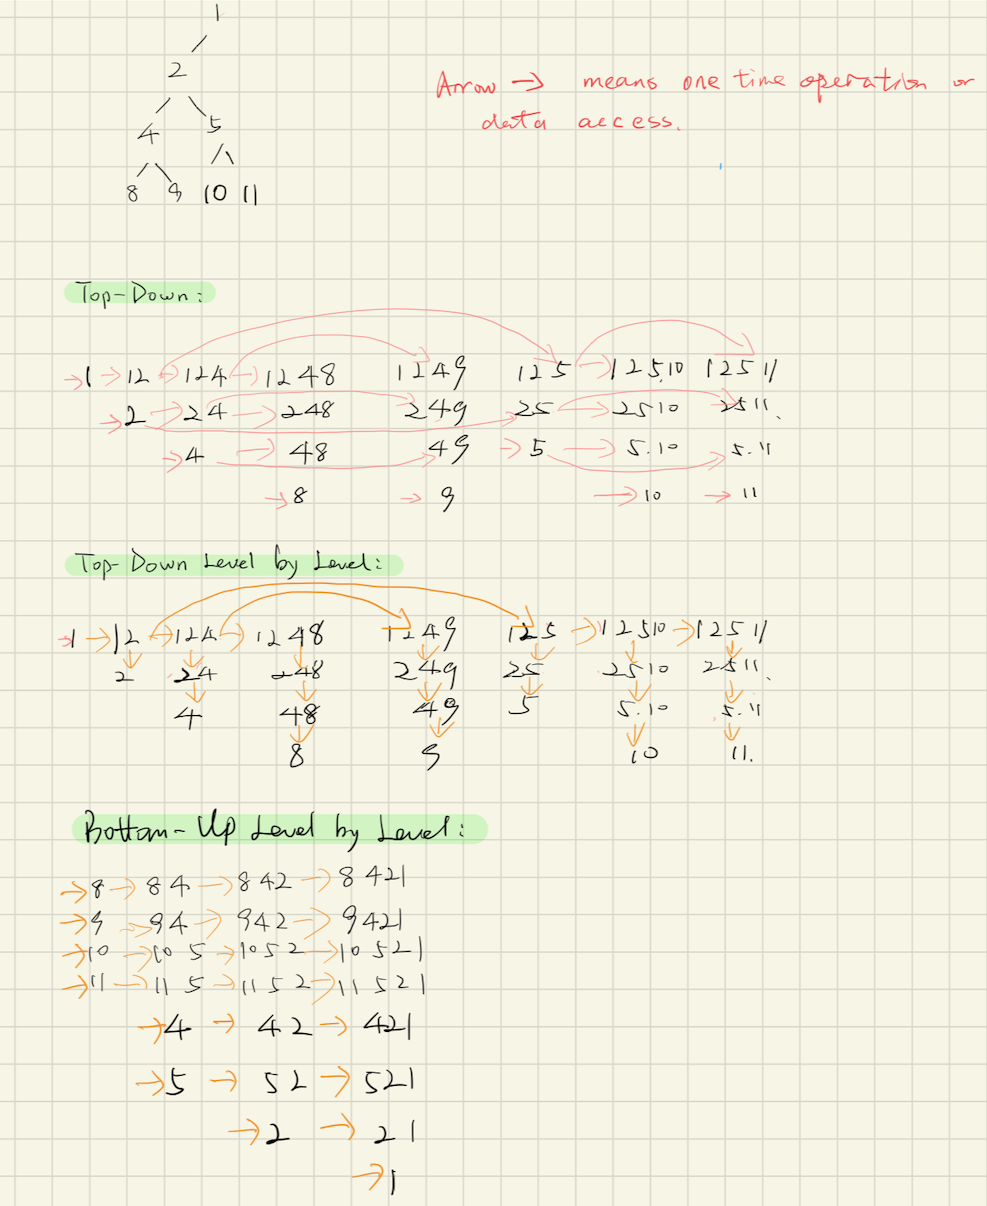 1
2
4 5
8 9 10 11
Arrow → means one time operation or
data access.
Top-Down:
→1 → 12 → 124 → 1248 1249 125 → 12510 12511
→2 → 24 → 248 249 25 → 2510 2511.
→4 → 48 49 → 5 → 5.10 5.11
→8 → 9 → 10 → 11
Top-Down Level by Level:
→1 → 12 → 124 → 1248 1249 125 → 12510 → 12511
2 24 248 249 25 2510 2511.
4 48 49 5 5.10 5.11
8 9 10 11.
Bottom-Up Level by Level:
→8 → 84 → 842 → 8421
→9 → 94 → 942 → 9421
→10 → 10 5 → 10 5 2 → 10 5 2 1
→11 → 11 5 → 11 5 2 → 11 5 2 1
→4 → 42 → 421
→5 → 52 → 521
→2 → 21
→1